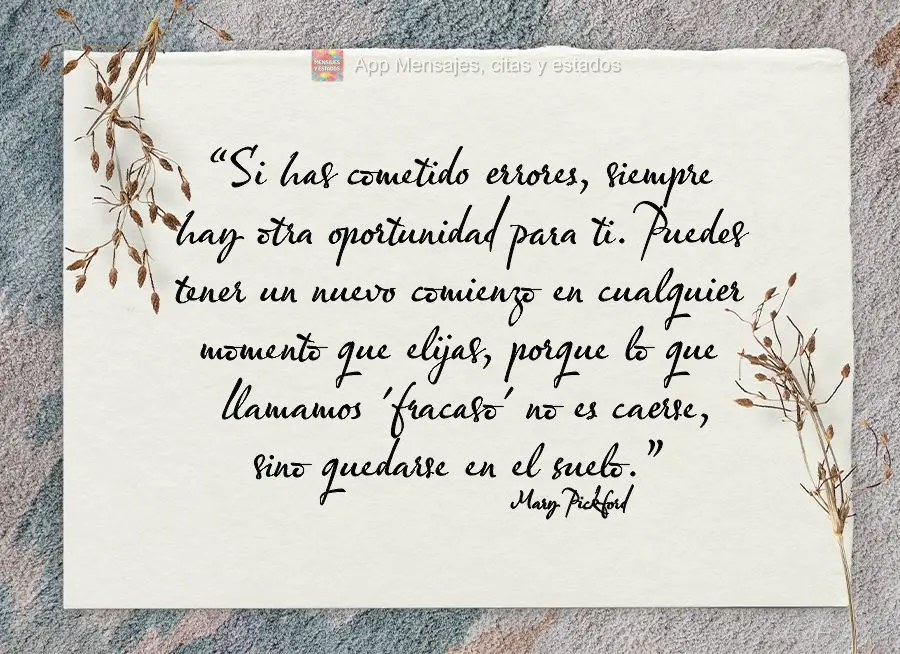 MENSAJES
Y ESTADOS
App Mensajes, citas y estados
“Si has cometido errores, siempre
hay otra oportunidad para ti. Puedes
tener un nuevo comienzo en cualquier
momento que elijas, porque lo que
llamamos 'fracaso' no es caerse,
sino quedarse en el suelo.”
Mary Pickford